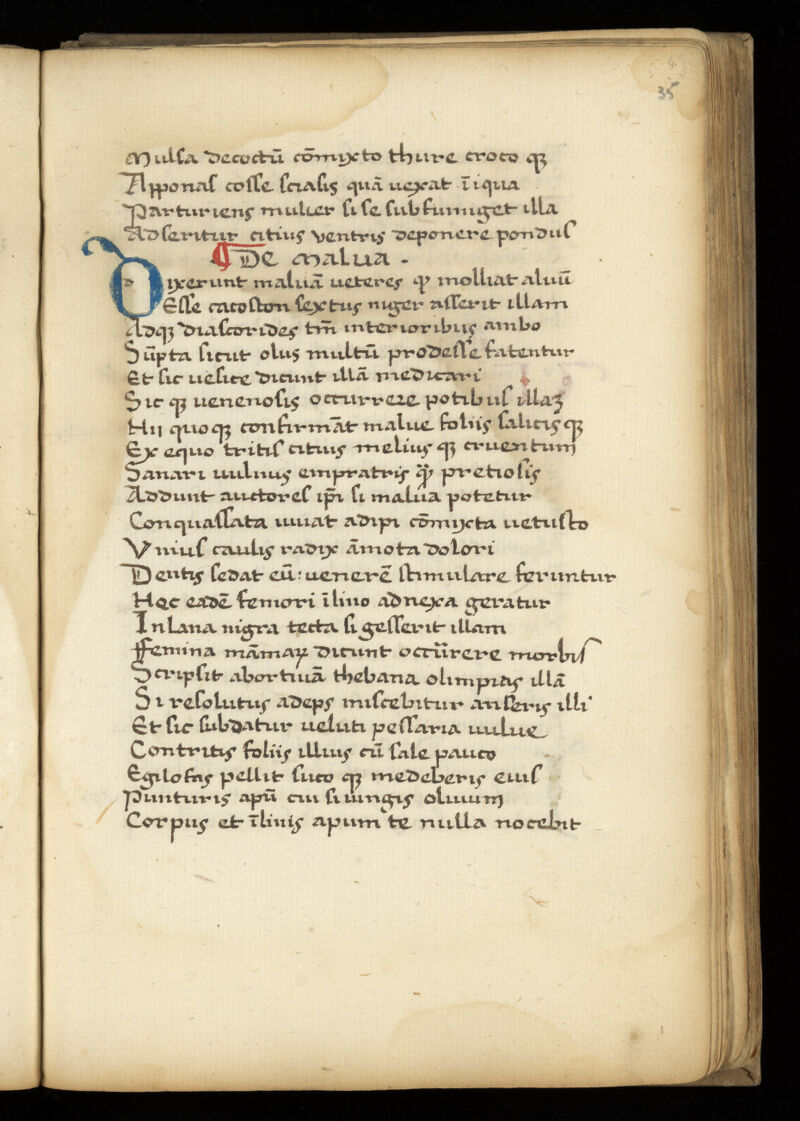 35
Mulsa decoctū cōmixto thure croco qꝫ
Apponas cosse sciasis quā uexat īiqua
Parturiens mulier si se subfumiget illa
Adseritur citius ventris deponere pondus
¶ De malua .
Dixerunt maluā ueteres qꝫ molliat aluū
Esse cacoston sextus niger asserit illam
Adqꝫ diascorides tm̄ interioribus ambo
Sūpta sicut olus multū prodesse fatentur
Et sic uesice dicunt illā medicari
Sic qꝫ uenenosis occurrere potibus illaꝫ
Hij quoqꝫ confirmāt malue foliis salicis qꝫ
Ex equo tritis citius melius qꝫ cruentum
Sanari uulnus empratris qꝫ pretiosis
Addunt auctores ip̄i si malua potetur
Conquassata iuuat adipi cōmixta uetusto
Vnius caulis radix āmota dolori
Dentis sedat eū: uenerē stimulare feruntur
Hec eadē femori īlino adnexa geratur
In lana nigra tecta si gesserit illam
Ffemina māmaꝝ dicunt occurrere morbis
Scripsit abortiuā thebana olimpias illā
Si resolutus adeps miscebitur anseris illi
Et sic subdatur ueluti pessaria uulue
Contritis foliis illius cū sale pauco
Egilofas pellit suco qꝫ medeberis eius
Punturis apū cui si iungis oliuum
Corpus et īlinis apum te nulla nocebit